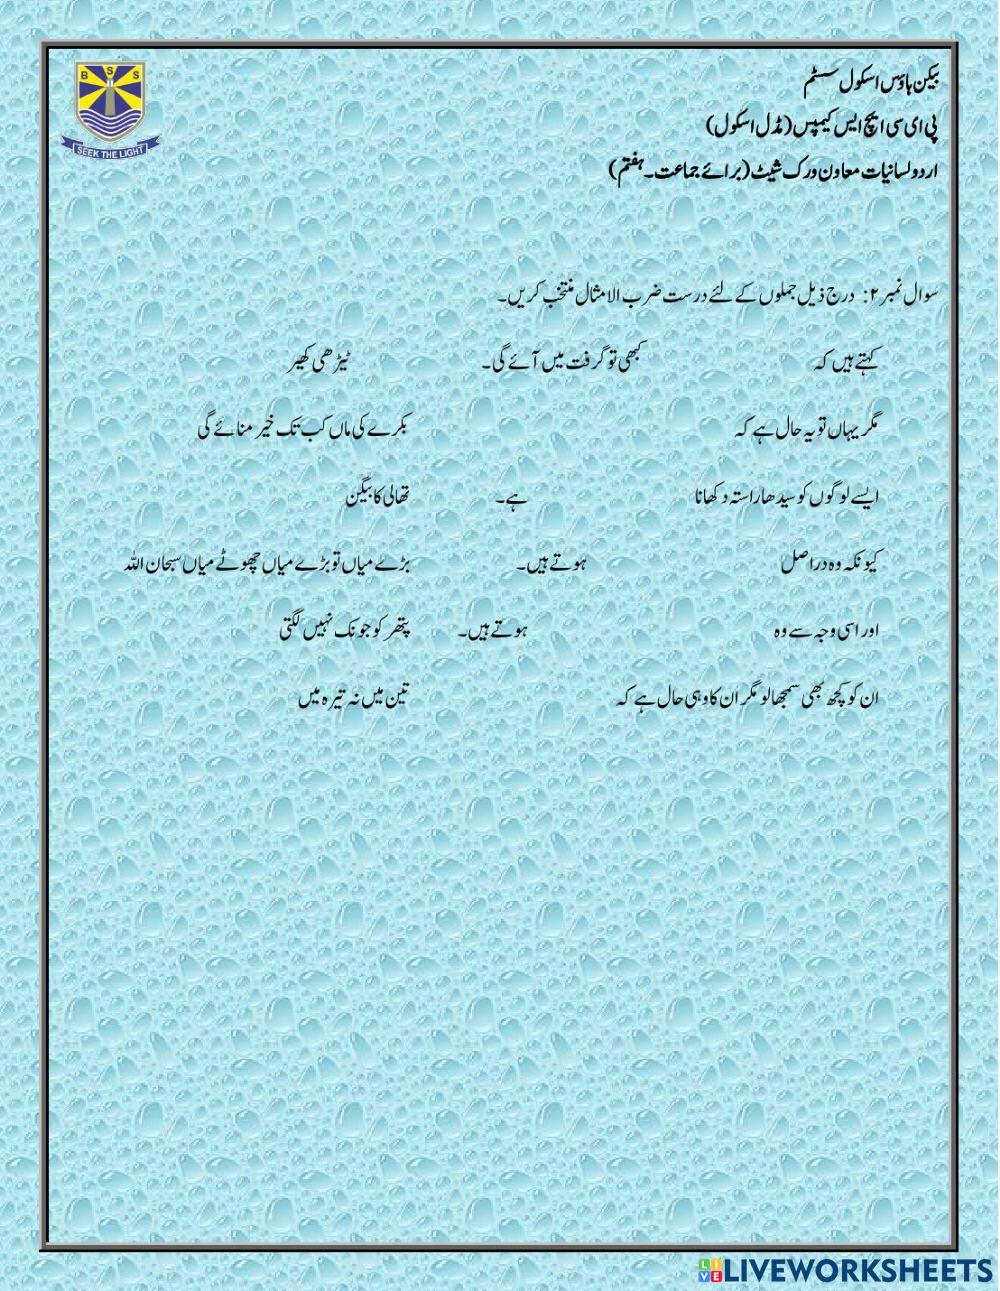 بیکن ہاؤس اسکول سسٹم
پی ای سی ایچ ایس کیمپس (مڈل اسکول)
اردو لسانیات معاون ورک شیٹ (برائے جماعت۔ ہفتم)
B S S
SEEK THE LIGHT
سوال نمبر ۲: درج ذیل جملوں کے لئے درست ضرب الامثال منتخب کریں۔
کہتے ہیں کہ کبھی تو گرفت میں آئے گی۔ ٹیڑھی کھیر
مگر یہاں تو یہ حال ہے کہ بکرے کی ماں کب تک خیر منائے گی
ایسے لوگوں کو سیدھا راستہ دکھانا ہے۔ تھالی کا بیگن
کیونکہ وہ دراصل ہوتے ہیں۔ بڑے میاں تو بڑے میاں چھوٹے میاں سبحان اللہ
اور اسی وجہ سے وہ ہوتے ہیں۔ پتھر کو جونک نہیں لگتی
ان کو کچھ بھی سمجھا لو مگر ان کا وہی حال ہے کہ تین میں نہ تیرہ میں
LIVE LIVEWORKSHEETS